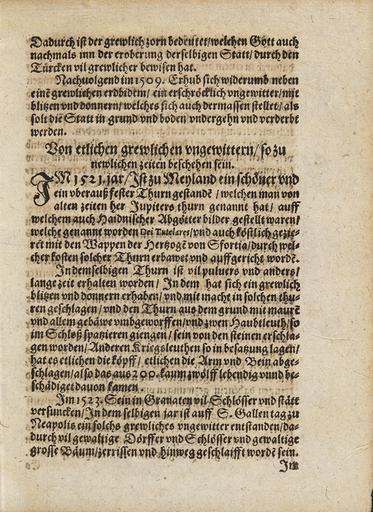 Dadurch ist der grewlich zorn bedeutet/welchen Gott auch
nachmals inn der eroberung derselbigen Statt/durch den
Türcken vil grewlicher bewisen hat.
Nachuolgend im 1509. Erhub sich widerumb neben
einē grewlichen erdbidem/ ein erschröcklich vngewitter/mit
blitzen vnd donnern/welches sich auch dermassen stellet/als
solt die Statt in grund vnd boden vndergehn vnd verderbt
werden.
Von etlichen grewlichen vngewittern/so zu
newlichen zeiten beschehen sein.
IM 1521.jar/Ist zu Meyland ein schöner vnd
ein vberauß fester Thurn gestandē/welchen man von
alten zeiten her Jupiters thurn genannt hat/ auff
welchem auch Haidnischer Abgötter bilder gestellt waren/
welche genannt worden Dei Tutelares/vnd auch köstlich gezie-
ret mit den Wappen der Hertzogē von Sfortia/durch wel-
cher kosten solcher Thurn erbawet vnd auffgericht wordē.
In demselbigen Thurn ist vil puluers vnd anders/
lange zeit erhalten worden/ In dem hat sich ein grewlich
blitzen vnd donnern erhaben/vnd mit macht in solchen thu-
ren geschlagen/vnd den Thurn auß dem grund mit maurē
vnd allem gebäwe vmbgeworffen/vnd zwen Haubtleuth/so
im Schloß spatzieren giengen/sein von den steinen erschla-
gen worden/Anderen Kriegsleuthen so in besatzung lagen/
hat es etlichen die köpff/ etlichen die Arm vnd Bein abge-
schlagen/also das auß 200. kaum zwölff lebendig vnnd be-
schädiget dauon kamen
Im 1523. Sein in Granaten vil Schlösser vnd stätt
versuncken/In dem selbigen jar ist auff S. Gallen tag zu
Neapolis ein solchs grewliches vngewitter entstanden/da-
durch vil gewaltige Dörffer vnd Schlösser vnd gewaltige
grosse Bäum/zerrissen vnd hinweg geschlaifft wordē sein.
Im